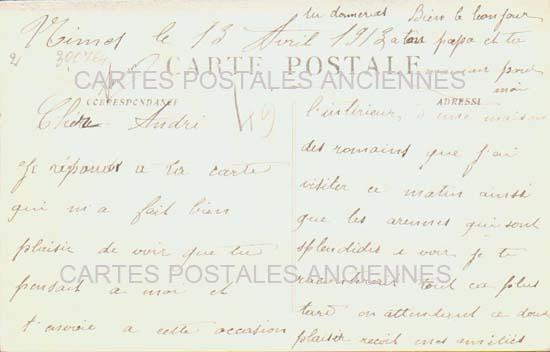 tu donneras Bien le bonjour
Nimes le 13 Avril 1913 a ton papa et ta
maman pour
moi
300764
CARTE POSTALE
CARTES POSTALES ANCIENNES
CORRESPONDANCE
ADRESSE
49
Cher André
Je réponds a ta carte
qui m'a fait bien
plaisir de voir que tu
pensait a moi et
t'envoie a cette occasion
l'intérieur, d'une maison
des romains que j'ai
visiter ce matin ainsi
que les arennes qui sont
splendides a voir je te
raconterai tout ca plus
tard en attendant ce doux
plaisir recoit mes amitiés
CARTES POSTALES ANCIENNES